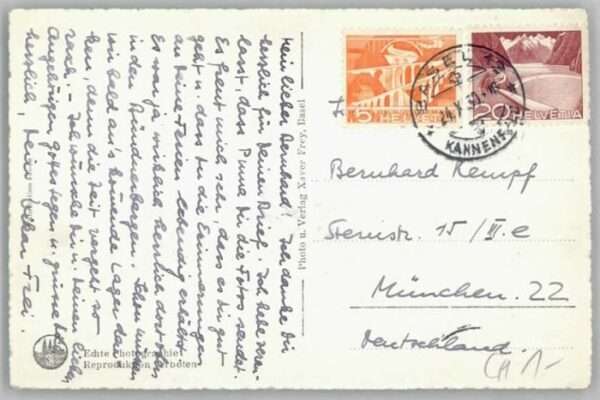 Mein lieber Bernhard! Ich danke Dir
herzlich für Deinen Brief. Ich habe veran-
lasst, dass Pinna Dir die Fotos sendet.
Es freut mich sehr, dass es Dir gut
geht u. dass Du die Erinnerungen
an Deine Ferien lebendig erhältst.
Es war ja wirklich herrlich dort oben
in den Bündnerbergen. Schon müssen
wir bald ans kommende Lager den-
ken, denn die Zeit vergeht so
rasch. - Ich wünsche Dir u. Deinen lieben
Angehörigen Gottes Segen u. grüsse Dich
herzlich, Dein Oskar Frei.
Photo u. Verlag Xaver Frey, Basel
Echte Photographie
Reproduktion verboten
5
HELVETIA
20
HELVETIA
BASEL
KANNENF
Bernhard Kempf
Sternstr. 15/III.e
München. 22
Deutschland.